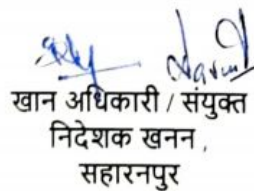 खान अधिकारी / संयुक्त
निदेशक खनन,
सहारनपुर